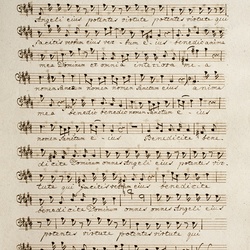 Angeli eius potentes virtute potentes virtute qui
facitis verbum eius verbum eius benedic anima
mea Domino et omnia interiora mea
nomen Sanctum nomen nomen Sanctum eius anima
mea benedic benedic nomen Sanctum
nomen Sanctum eius Benedicite bene
dicite Domino omnes Angeli eius potentes vir
tute qui facitis verbum eius benedicite
benedicite Domino omnes omnes Angeli eius
potentes virtute potentes virtute qui